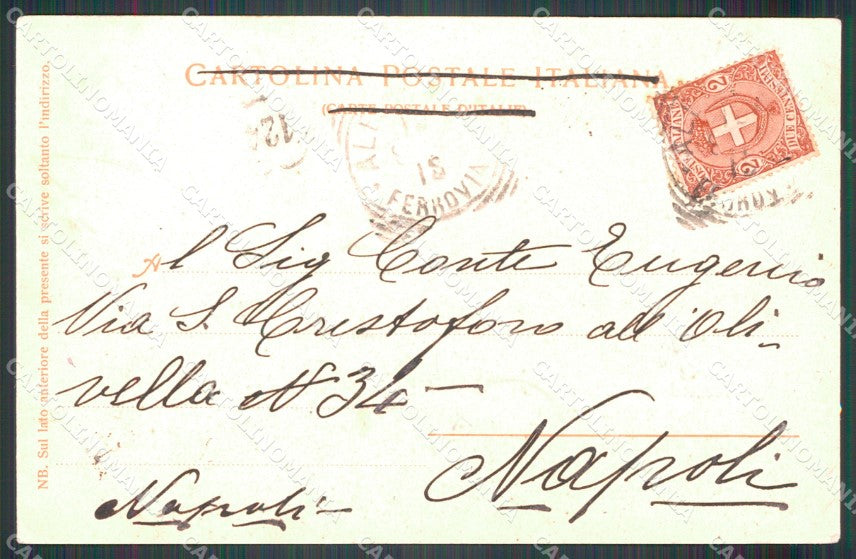 CARTOLINA POSTALE ITALIANA
(CARTE POSTALE D'ITALIE)
12
18
FERROVIA
2 2
DUE CENT
Al Sig Conte Eugenio
Via S. Cristoforo all'Oli-
vella N 34 –
Napoli
Napoli –
NB. Sul lato anteriore della presente si scrive soltanto l'indirizzo.
CARTOLINOMANIA